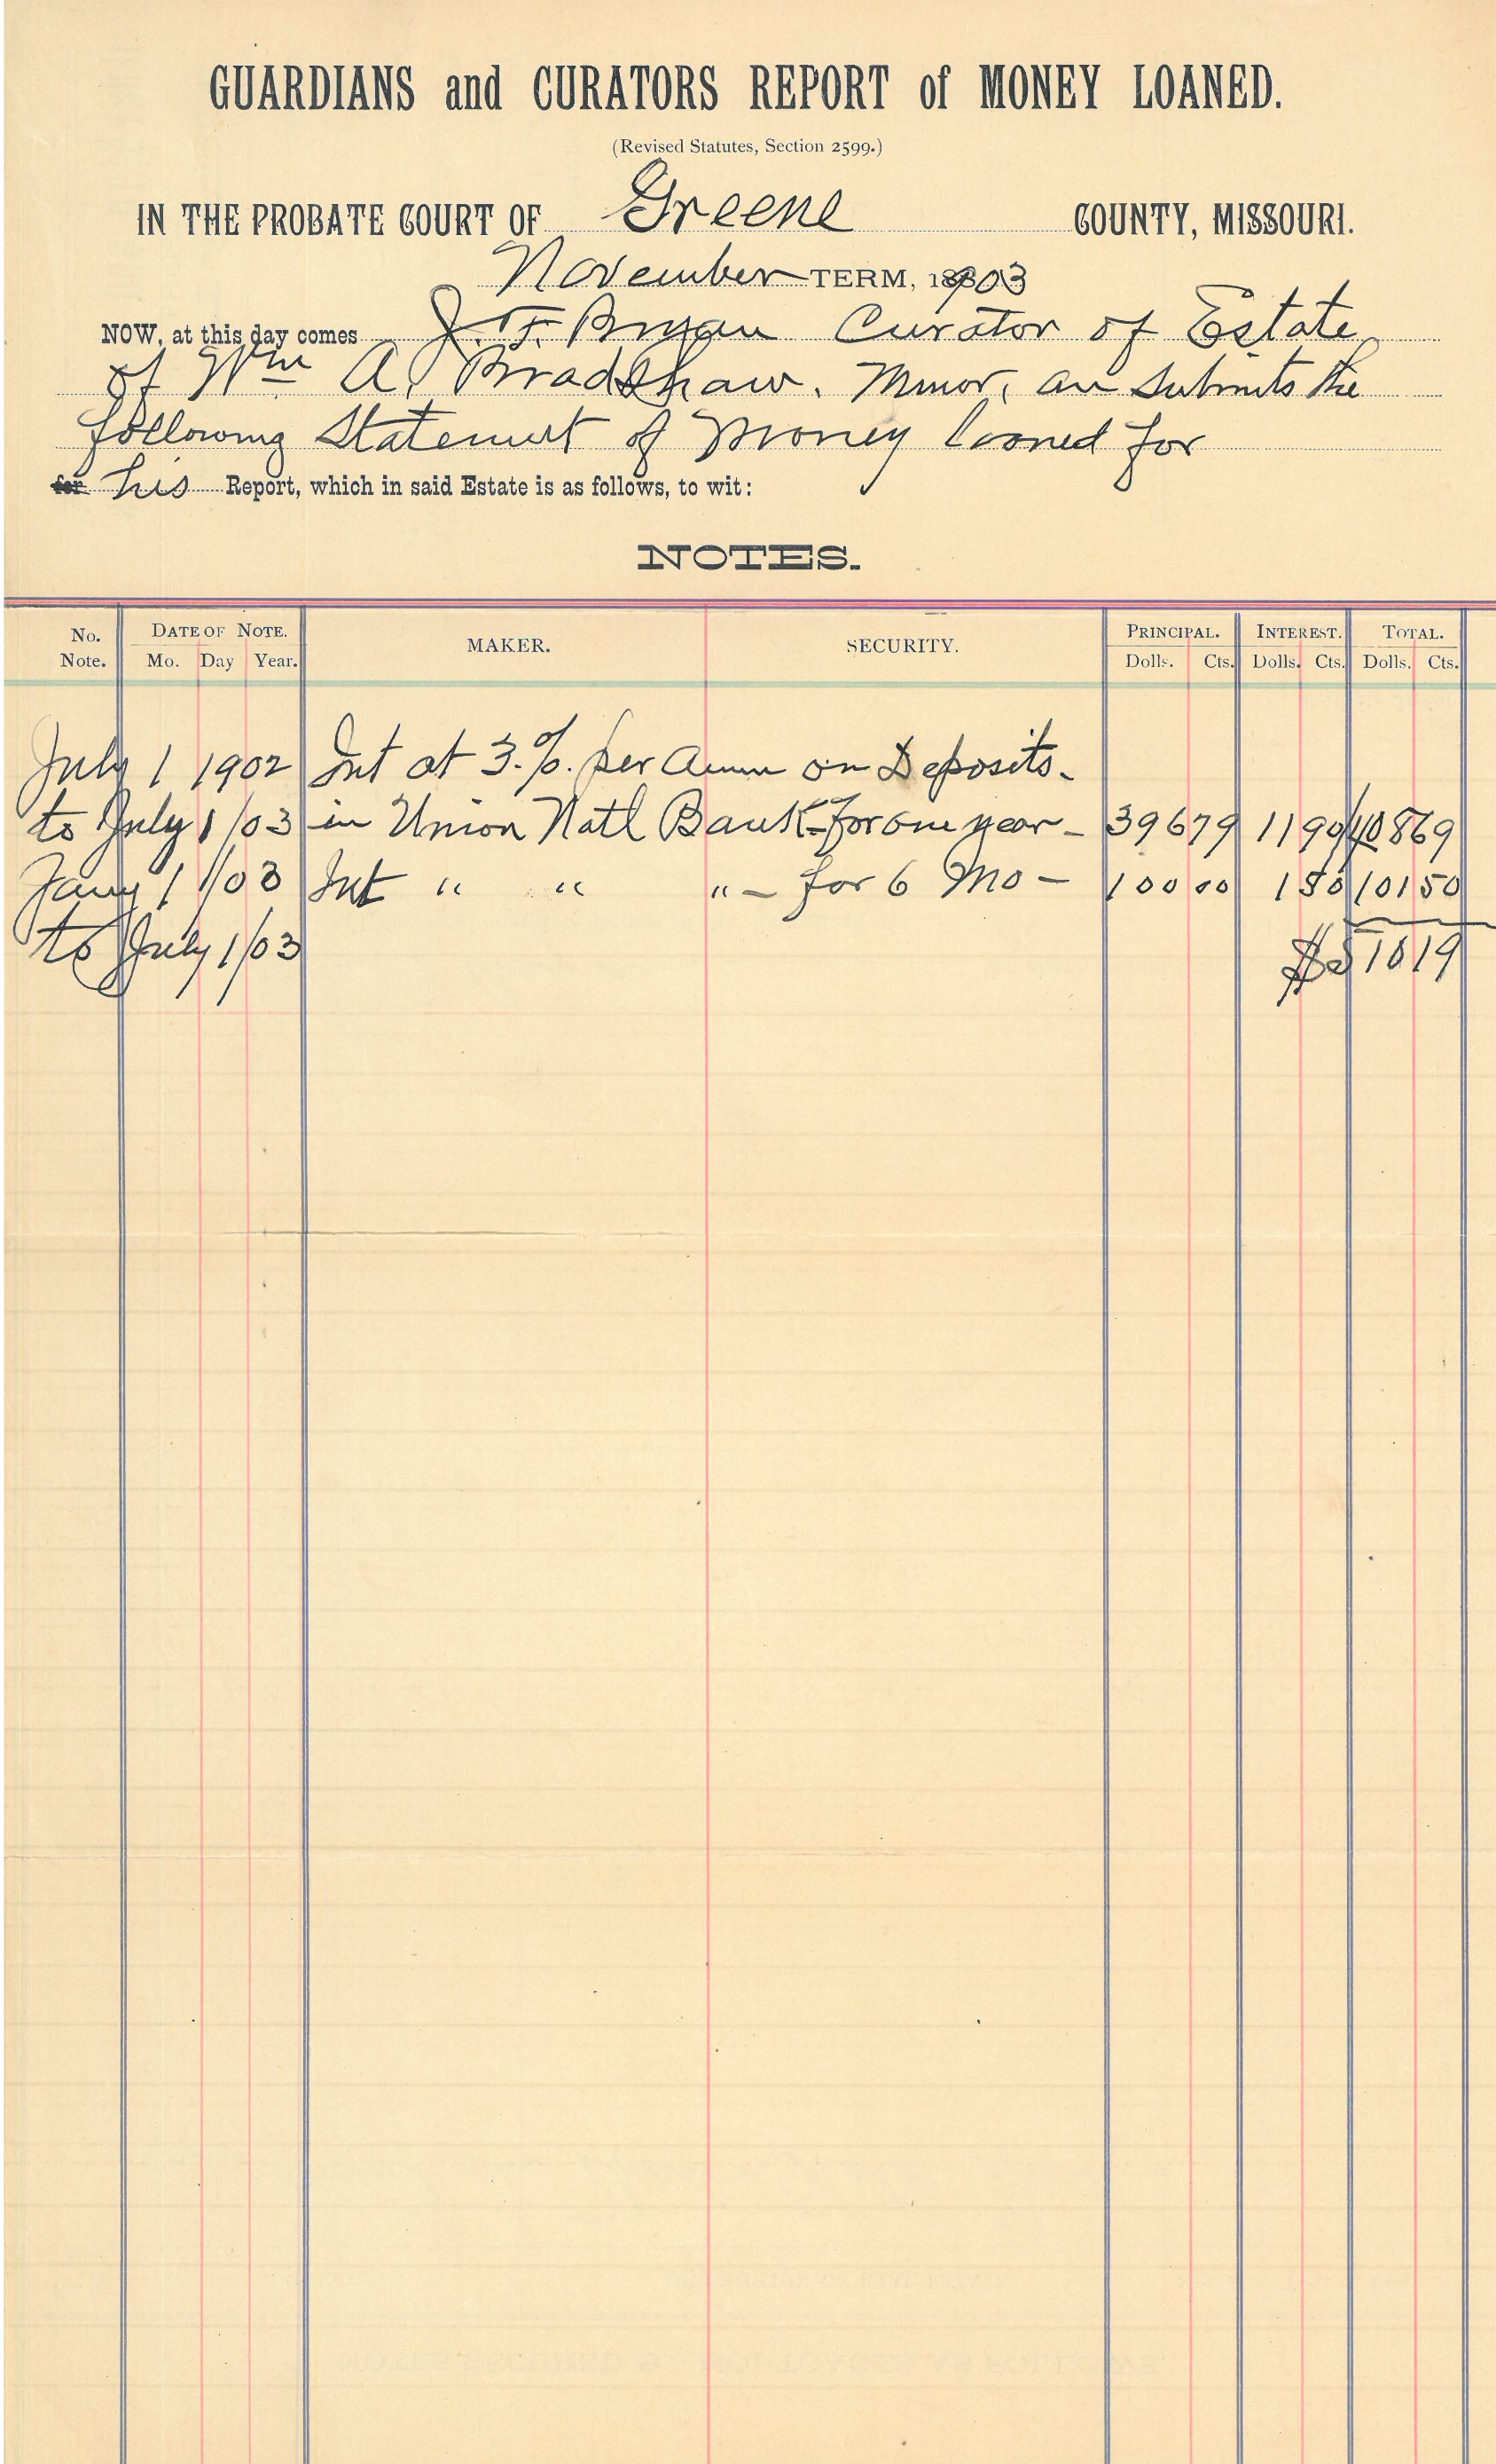 GUARDIANS and CURATORS REPORT of MONEY LOANED.
(Revised Statutes, Section 2599.)
IN THE PROBATE COURT OF Greene COUNTY, MISSOURI.
November TERM, 1903
NOW, at this day comes J. F. Bryan Curator of Estate
of Wm A. Bradshaw. Minor, an submits the
following Statement of Money loaned for
for his Report, which in said Estate is as follows, to wit:
NOTES.
No. Note. DATE OF NOTE. Mo. Day Year. MAKER. SECURITY. PRINCIPAL. Dolls. Cts. INTEREST. Dolls. Cts. TOTAL. Dolls. Cts.
July 1 1902 Int at 3.%. per Annm on Deposits.
to July 1/03 in Union Natl Bank - for one year - 396 79 11 90 408 69
Jany 1 1/03 Int " " " - for 6 Mo - 100 00 1 50 101 50
to July 1/03 $510 19